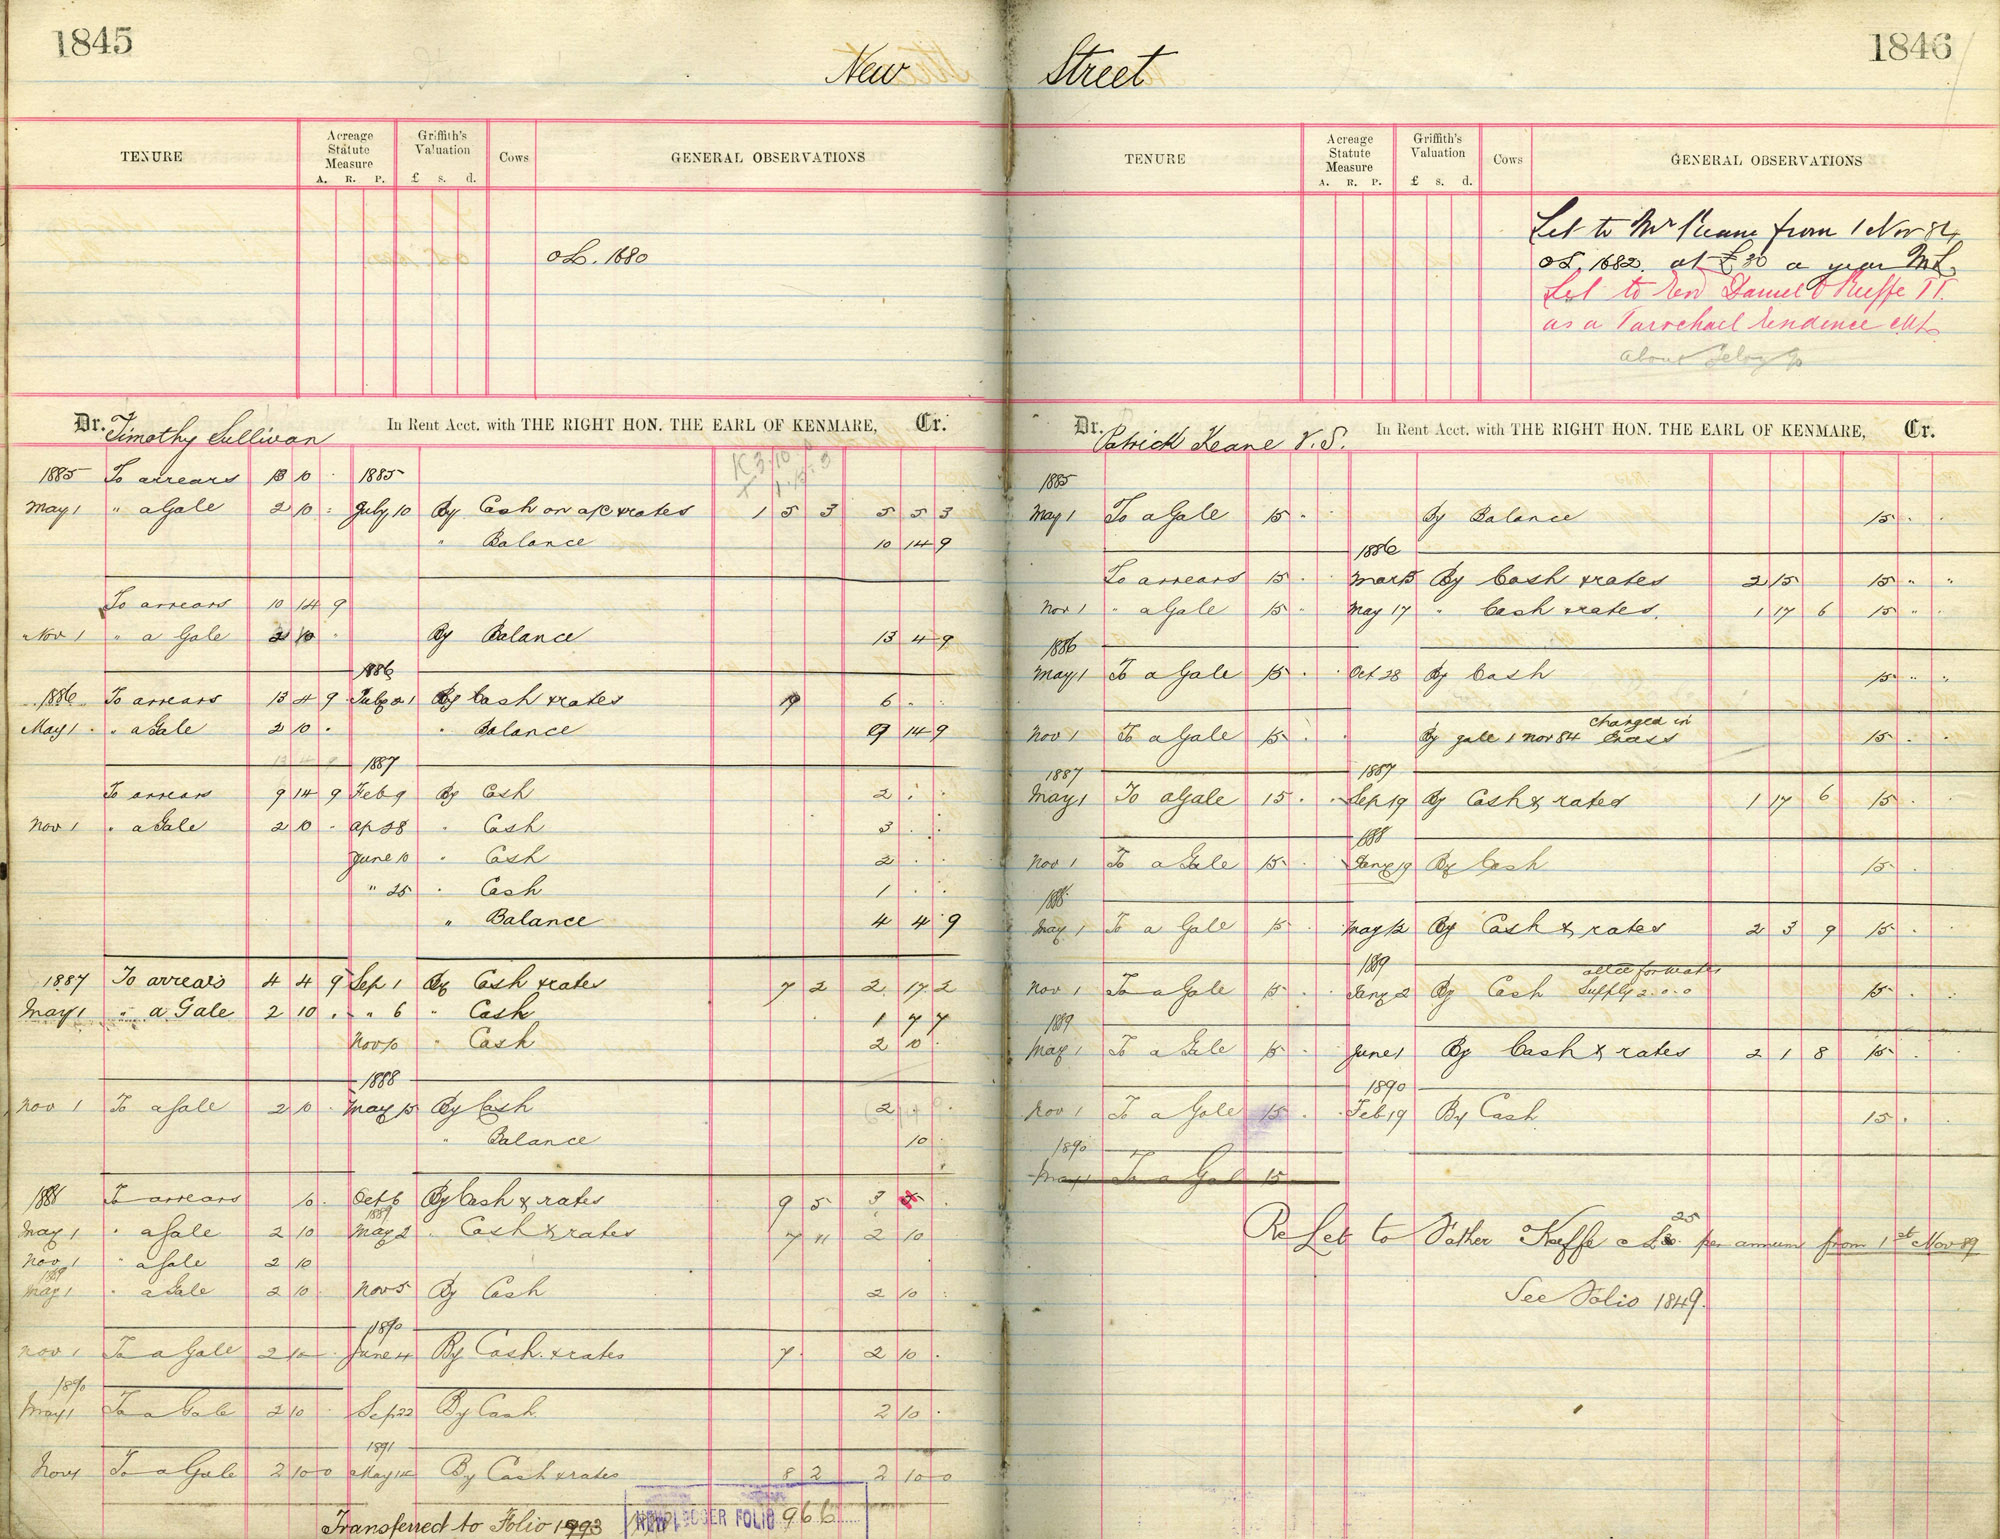 1845
New
TENURE Acreage Statute Measure A. R. P. Griffith's Valuation £ s. d. Cows GENERAL OBSERVATIONS
OL. 1680
Dr. Timothy Sullivan In Rent Acct. with THE RIGHT HON. THE EARL OF KENMARE, Cr.
1885 To arrears 13 10 1885
May 1 " a Gale 2 10 July 10 By Cash on a/c & rates 1 5 3 5 5 3
" Balance 10 14 9
To arrears 10 14 9
Nov 1 " a Gale 2 10 By Balance 13 4 9
1886
1886 To arrears 13 4 9 By Cash & rates 19 6
May 1 " a Gale 2 10 " Balance 9 14 9
1887
To arrears 9 14 9 Feb 9 By Cash 2
Nov 1 " a Gale 2 10 Ap 28 " Cash 3
June 10 " Cash 2
" 25 " Cash 1
" Balance 4 4 9
1887 To arrears 4 4 9 Sep 1 By Cash & rates 7 2 2 17 2
May 1 " a Gale 2 10 " 6 " Cash 1 7 7
Nov 10 " Cash 2 10
1888
Nov 1 To a Gale 2 10 May 15 By Cash 2
" Balance 10
1888 To arrears 10 Oct 6 By Cash & rates 9 5 3
1889
May 1 " a Gale 2 10 May 2 " Cash & rates 7 11 2 10
Nov 1 " a Gale 2 10
1889
May 1 " a Gale 2 10 Nov 5 By Cash 2 10
1890
Nov 1 To a Gale 2 10 June 4 By Cash & rates 7 2 10
1890
May 1 To a Gale 2 10 Sep 22 By Cash 2 10
1891
Nov 1 To a Gale 2 10 0 May 14 By Cash & rates 8 2 2 10 0
Transferred to Folio 1993 NEW LEDGER FOLIO 966
1846
Street
TENURE Acreage Statute Measure A. R. P. Griffith's Valuation £ s. d. Cows GENERAL OBSERVATIONS
Let to Mr Keane from 1 Nov 84
OL. 1682. at £30 a year ML
Let to Rev Daniel O Keeffe
as a Parochael
Dr. Patrick Keane V.S. In Rent Acct. with THE RIGHT HON. THE EARL OF KENMARE, Cr.
1885
May 1 To a Gale 15 By Balance 15
1886
To arrears 15 Mar 15 By Cash & rates 2 15 15 " "
Nov 1 " a Gale 15 May 17 " Cash & rates. 1 17 6 15 " "
1886
May 1 To a Gale 15 Oct 28 By Cash 15 " "
Nov 1 To a Gale 15 By gale 1 Nov 84 charged in 15
1887 1887
May 1 To a Gale 15 Sep 19 By Cash & rates 1 17 6 15
1888
Nov 1 To a Gale 15 Jany 19 By Cash 15
1888
May 1 To a Gale 15 May 12 By Cash & rates 2 3 9 15
1889
Nov 1 To a Gale 15 Jany 2 By Cash allce for water supply 2.0.0 15
1889
May 1 To a Gale 15 June 1 By Cash & rates 2 1 8 15
1890
Nov 1 To a Gale 15 Feb 19 By Cash 15
1890
May 1 To a Gal 15
Re Let to Father Keeffe a £25 per annum from 1st Nov 89
See Folio 1849.